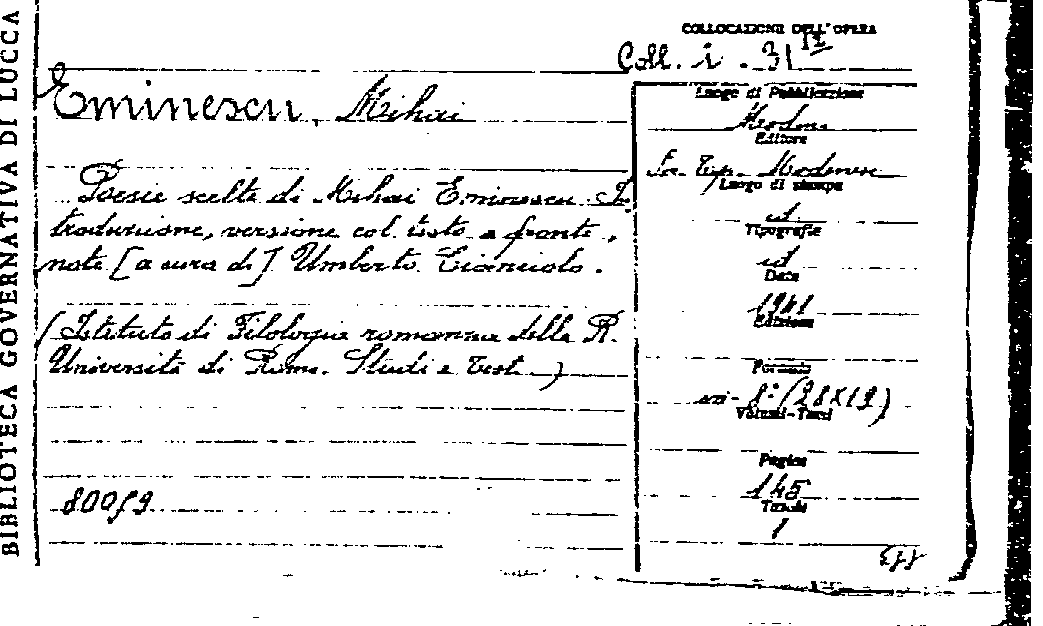 BIBLIOTECA GOVERNATIVA DI LUCCA
COLLOCAZIONE DELL'OPERA
Coll. i. 31
Eminescu, Mihai
Poesie scelte di Mihai Eminescu. In
troduzione, versione col testo a fronte,
note [a cura di] Umberto Cianciolo.
(Istituto di Filologia romanza della R.
Università di Roma. Studi e Testi)
80059
Luogo di Pubblicazione
Modena
Editore
Soc. Tip. Modenese
Luogo di stampa
id
Tipografia
id
Data
1941
Edizione
Formato
in-8° (28x19)
Volumi-Tomi
Pagine
145
Tavole
1